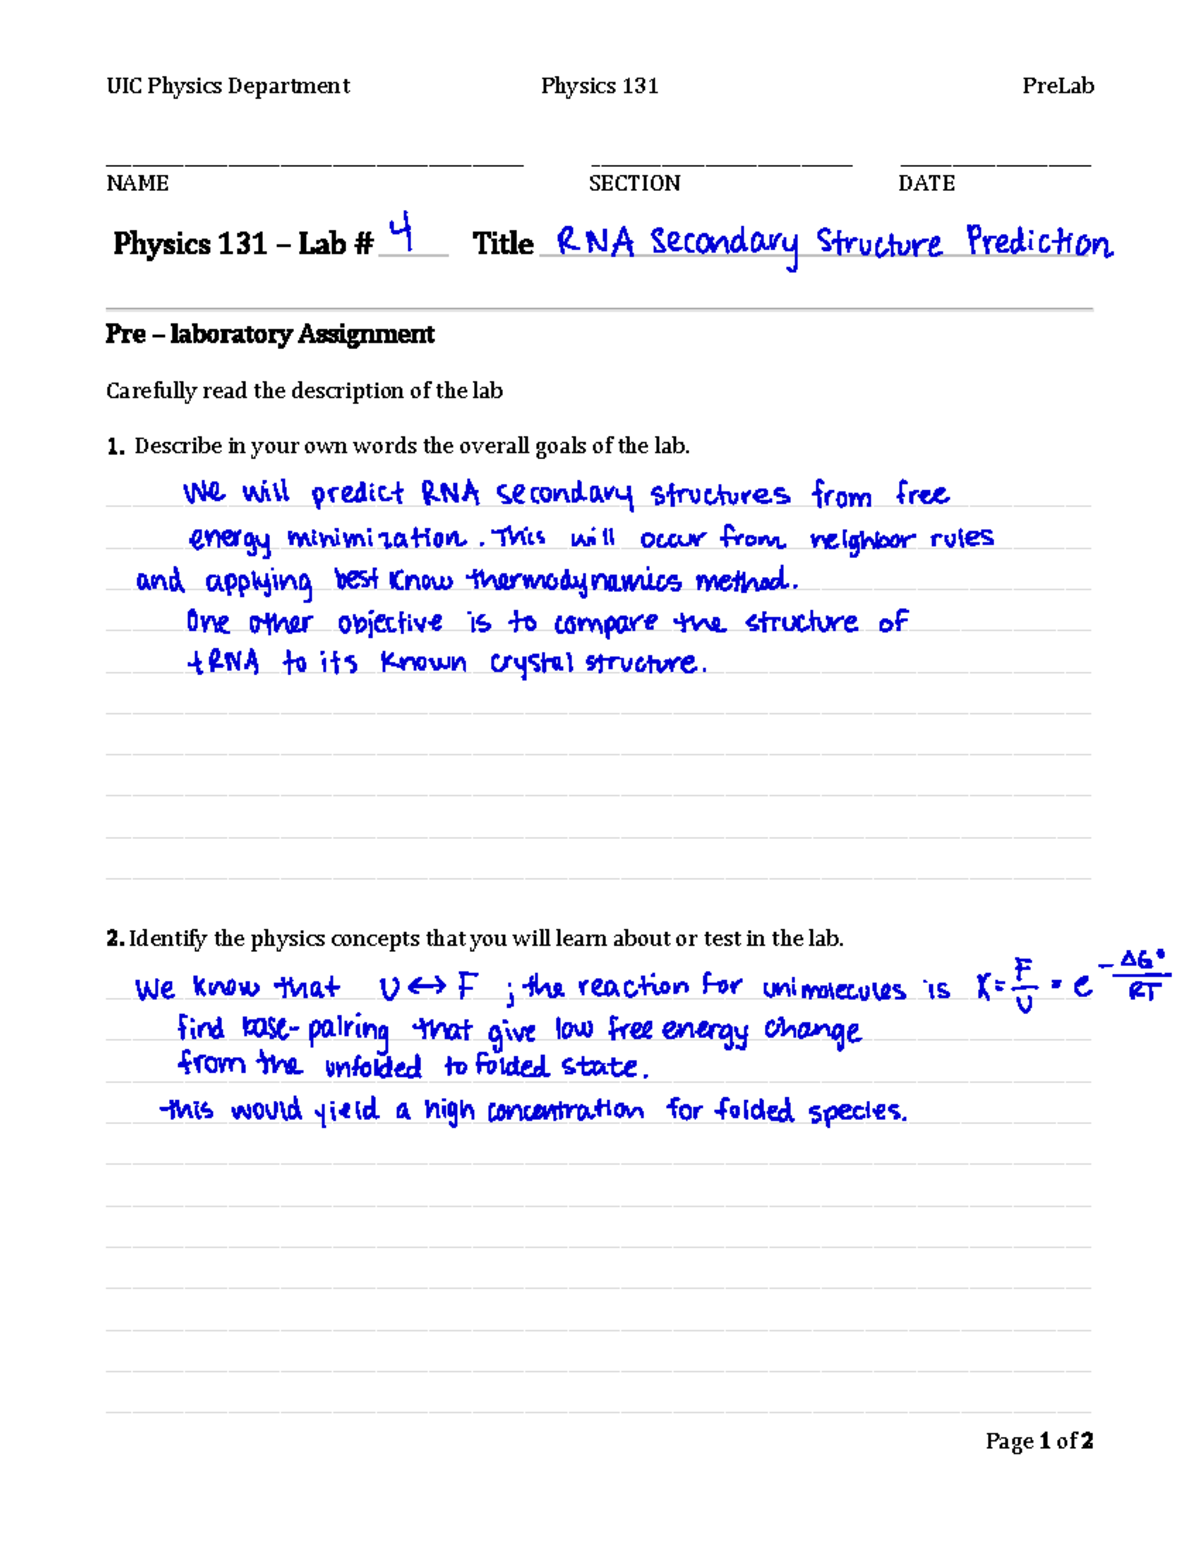 UIC Physics Department Physics 131 PreLab
NAME SECTION DATE
Physics 131 – Lab # 4 Title RNA Secondary Structure Prediction
Pre – laboratory Assignment
Carefully read the description of the lab
1. Describe in your own words the overall goals of the lab.
We will predict RNA secondary structures from free
energy minimization. This will occur from neighbor rules
and applying best know thermodynamics method.
One other objective is to compare the structure of
tRNA to its known crystal structure.
2. Identify the physics concepts that you will learn about or test in the lab.
We know that U ↔ F ; the reaction for unimolecules is K = F/U = e^(-ΔG°/RT)
find base-pairing that give low free energy change
from the unfolded to folded state.
this would yield a high concentration for folded species.
Page 1 of 2